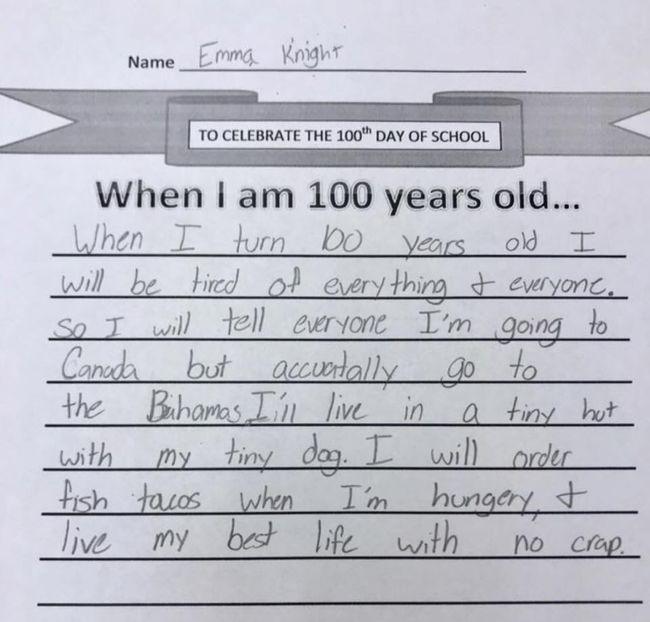 Name Emma Knight
TO CELEBRATE THE 100th DAY OF SCHOOL
When I am 100 years old...
When I turn 100 years old I
will be tired of everything & everyone.
So I will tell everyone I'm going to
Canada but accuatally go to
the Bahamas. I'ill live in a tiny hut
with my tiny dog. I will order
fish tacos when I'm hungery, &
live my best life with no crap.